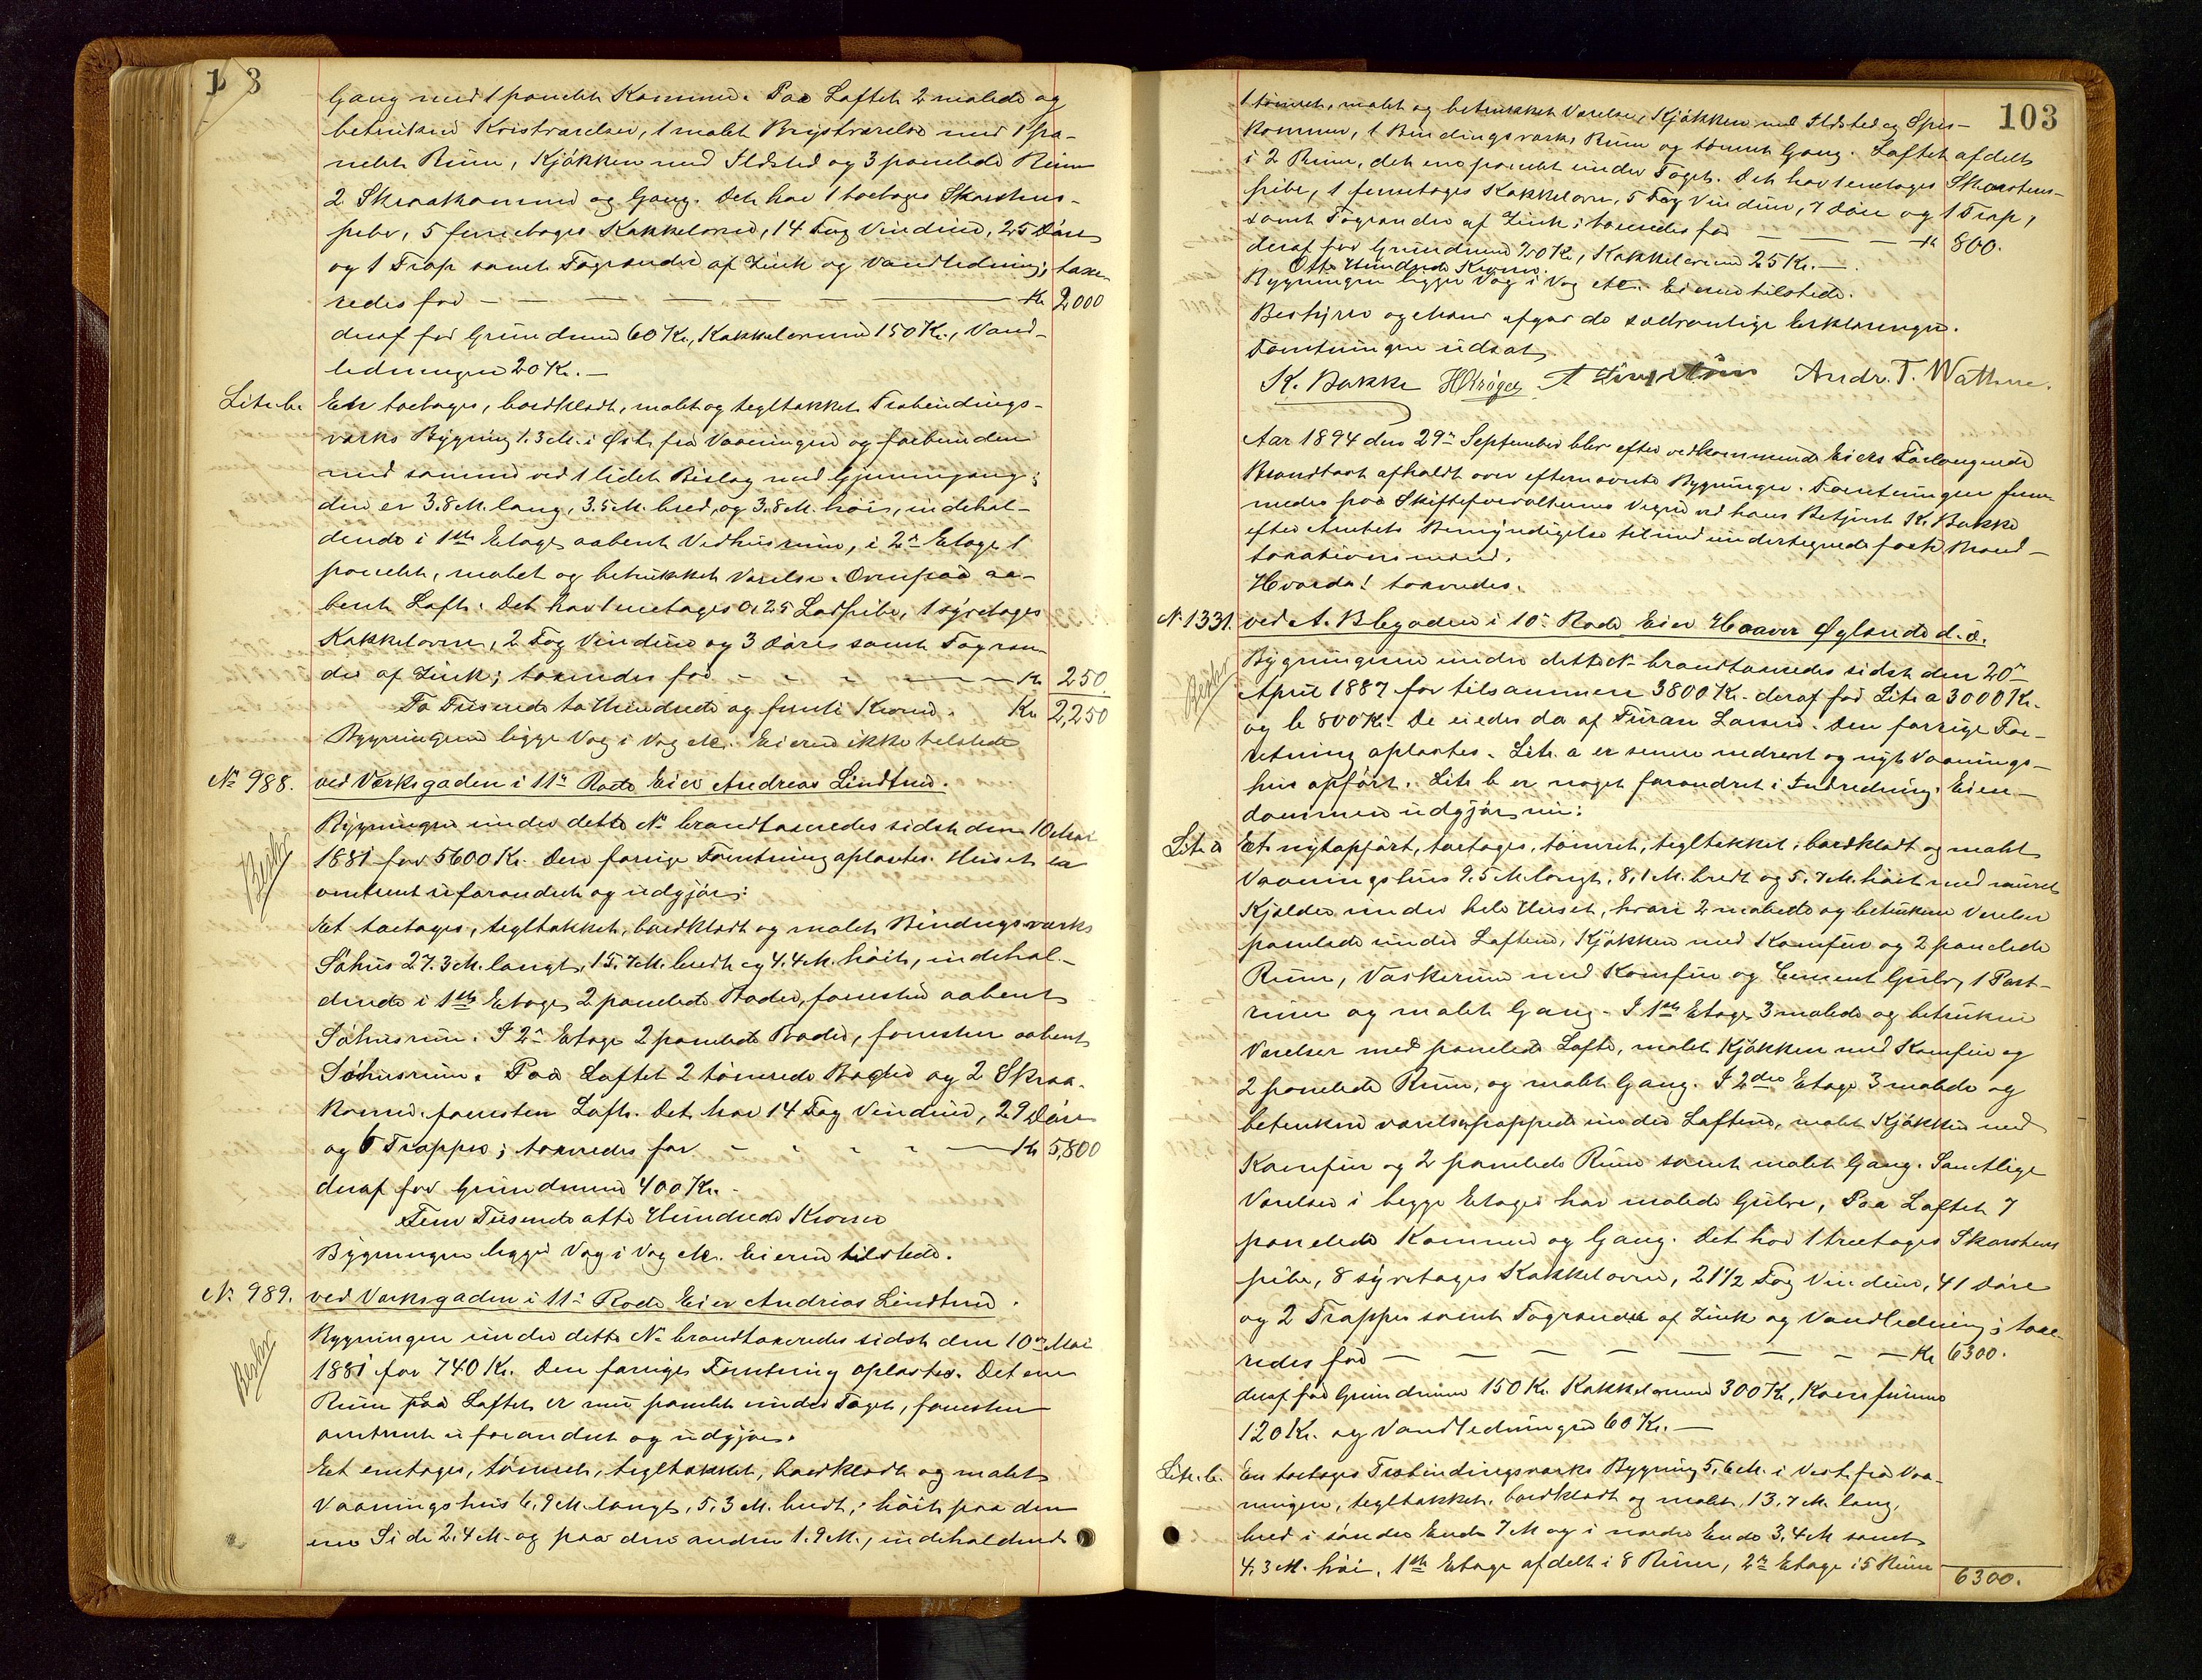 1 3
Gang med 1 panelet Kammer. Paa Loftet 2 malede og
betrukne Kvistværelser, 1 malet Brystværelse med 1 pa-
nelet Rum, Kjøkken med Ildsted og 3 panelede Rum
2 Skraakammer og Gang. Det har 1 toetages Skorstens-
pibe, 5 firetages Kakkelovne, 14 Fag Vinduer, 25 Døre
og 1 Trap samt Tagrender af Zink og Vandledning; taxe-
redes for — — — — — — Kr. 2000
deraf for Grundmur 60 Kr., Kakkelovnene 150 Kr., Vand-
ledningen 20 Kr. —
Litr. b. En toetages, bordklædt, malet og tegltækket Træbindings-
værks Bygning 1.3 M. i Øst fra Vaaningen og forbunden
med samme ved 1 lidet Bislag med Gjennemgang;
den er 3.8 M. lang, 3.5 M. bred, og 3.8 M. høi, indehol-
dende i 1ste Etage aabent Vedhusrum, i 2n Etage 1
panelet, malet og betrukket Værelse. Ovenpaa aa-
bent Loft. Det har 1 enetages 0.25 Ladpibe, 1 syvetages
Kakkelovn, 2 Fag Vinduer og 3 Døre samt Tagren-
der af Zink; taxeredes for - - - — Kr. 250.
To Tusende to Hundrede og femti Kroner. Kr. 2,250
Bygningerne ligger Væg i Væg etc. Eieren ikke tilstede
No 988. ved Værksgaden i 11te Rode Eier Andreas Lindtner.
Besbr
Bygningen under dette No brandtaxeredes sidst den 10 Mai
1881 for 5600 Kr. Den forrige Forretning oplæstes. Huset er
omtrent uforandret og udgjør:
Et toetages, tegltækket, bordklædt og malet Bindingsværks
Søhus 27.3 M. langt, 15.7 M. bredt og 4.4 M. høit, indehol-
dende i 1ste Etage 2 panelede Boder, forresten aabent
Søhusrum. I 2n Etage 2 panelede Boder, forresten aabent
Søhusrum. Paa Loftet 2 tømrede Boder og 2 Skraa-
kamre. forresten Loft. Det har 14 Fag Vinduer, 29 Døre
og 6 Trapper; taxeredes for - - - - — Kr. 5,800
deraf for Grundmur 400 Kr. -
Fem Tusende otte Hundrede Kroner
Bygningen ligger Væg i Væg etc. Eieren tilstede.
No 989. ved Værksgaden i 11te Rode Eier Andreas Lindtner.
Besbr
Bygningen under dette No brandtaxeredes sidst den 10de Mai
1881 for 740 Kr. Den forrige Forretning oplæstes. Det ene
Rum paa Loftet er nu panelet under Taget, forresten
omtrent uforandret og udgjør.
Et enetages, tømret, tegltækket, bordklædt og malet
Vaaningshus 6.9 M. langt, 5.3 M. bredt, høit paa den
ene Side 2.4 M. og paa den anden 1.9 M., indeholdende
103
1 tømret, malet og betrukket Værelse, Kjøkken med Ildsted og Spis-
kammer, 1 Bindingsværks Rum og tømret Gang. Loftet afdelt
i 2 Rum, det ene panelet under Taget. Det har 1 enetages Skorstens-
pibe, 1 femetages Kakkelovn, 5 Fag Vinduer, 7 Døre og 1 Trap,
samt Tagrender af Zink; taxeredes for — — — Kr. 800.
deraf for Grundmur 20 Kr., Kakkelovnen 25 Kr. —
Otte Hundrede Kroner.
Bygningen ligger Væg i Væg etc. Eieren tilstede.
Bestyrer og Mænd afgav de sædvanlige Erklæringer.
Forretningen udsat
K. Bakke Andr. T. Wathne.
Aar 1894 den 29de September blev efter vedkommende Eiers Forlangende
Brandtaxt afholdt over efternævnte Bygninger. Forretningen frem-
medes paa Skifteforvalterens Vegne ved hans Betjent K. Bakke
efter Amtets Bemyndigelse tilmed undertegnede faste Brand-
taxationsmænd.
Hvorda! taxeredes.
No 1331. ved A. B. C. gaden i 10de Rode Eier Haaver Øglænd d. æ.
Besbr
Bygningerne under dette No brandtaxeredes sidst den 20de
April 1887 for tilsammen 3800 Kr. deraf for Litr. a 3000 Kr.
og b 800 Kr. De eiedes da af Larsen. Den forrige For-
retning oplæstes. Litr. a er senere nedrevet og nyt Vaanings-
hus opført. Litr. b er noget forandret i Indredning. Eien-
dommen udgjør nu:
Litr. a Et nyt opført, toetages, tømret, tegltækket, bordklædt og malet
Vaaningshus 9.5 M. langt, 8.1 M. bredt og 5.7 M. høit med muret
Kjælder under hele Huset, hvori 2 malede og betrukne Værelser
panelede under Loftene, Kjøkken med Komfur og 2 panelede
Rum, Vaskerum med Komfur og Cement Gulv, 1 Port-
rum og malet Gang. I 1ste Etage 3 malede og betrukne
Værelser med panelede Lofte, malet Kjøkken med Komfur og
2 panelede Rum, og malet Gang. I 2den Etage 3 malede og
betrukne værelser pappede under Loftene, malet Kjøkken med
Komfur og 2 panelede Rum samt malet Gang. Samtlige
Værelser i begge Etager har malede Gulve, Paa Loftet 7
panelede Kammer og Gang. Det har 1 treetages Skorstens
pibe, 8 syvetages Kakkelovne, 21 1/2 Fag Vinduer, 41 Døre
og 2 Trapper samt Tagrender af Zink og Vandledning; taxe-
redes for — — — — — — — Kr. 6300.
deraf for Grundmur 150 Kr. Kakkelovnene 300 Kr., Komfurene
120 Kr. og Vandledningen 60 Kr. —
Litr. b. En toetages Træbindingsværks Bygning 5,6 M. i Vest fra Vaa-
ningen, tegltækket, bordklædt og malet, 13.7 M. lang,
bred i søndre Ende 7 M og i nordre Ende 3,4 M samt
4,3 M. høi. 1ste Etage afdelt i 8 Rum, 2n Etage i 5 Rum
6300.